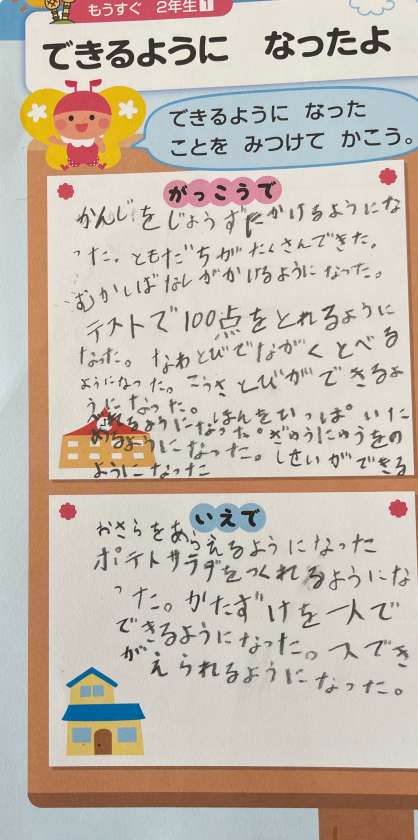 もうすぐ 2年生 1
できるように なったよ
できるように なった
ことを みつけて かこう。
がっこうで
かんじをじょうずにかけるようにな
った。ともだちがたくさんできた。
むかしばなしがかけるようになった。
テストで100点をとれるように
なった。なわとびでながくとべる
ようになった。こうさとびができるよ
うになった。
れるようになった。ほんをいっぱいた
めるようになった。ぎゅうにゅうをの
しせいができる
ようになった
いえで
おさらをあらえるようになった
ポテトサラダをつくれるようにな
った。かたずけを一人で
できるようになった。一人でき
がえられるようになった。